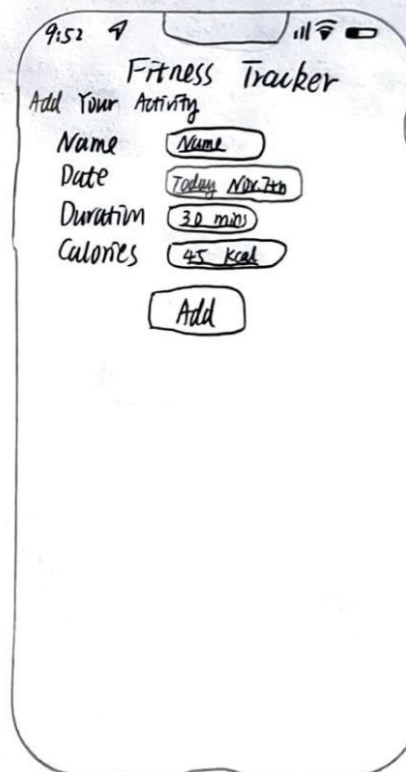 9:52
Fitness Tracker
Add Your Activity
Name Name
Date Today Nov.7th
Duration 30 mins
Calories 45 kcal
Add